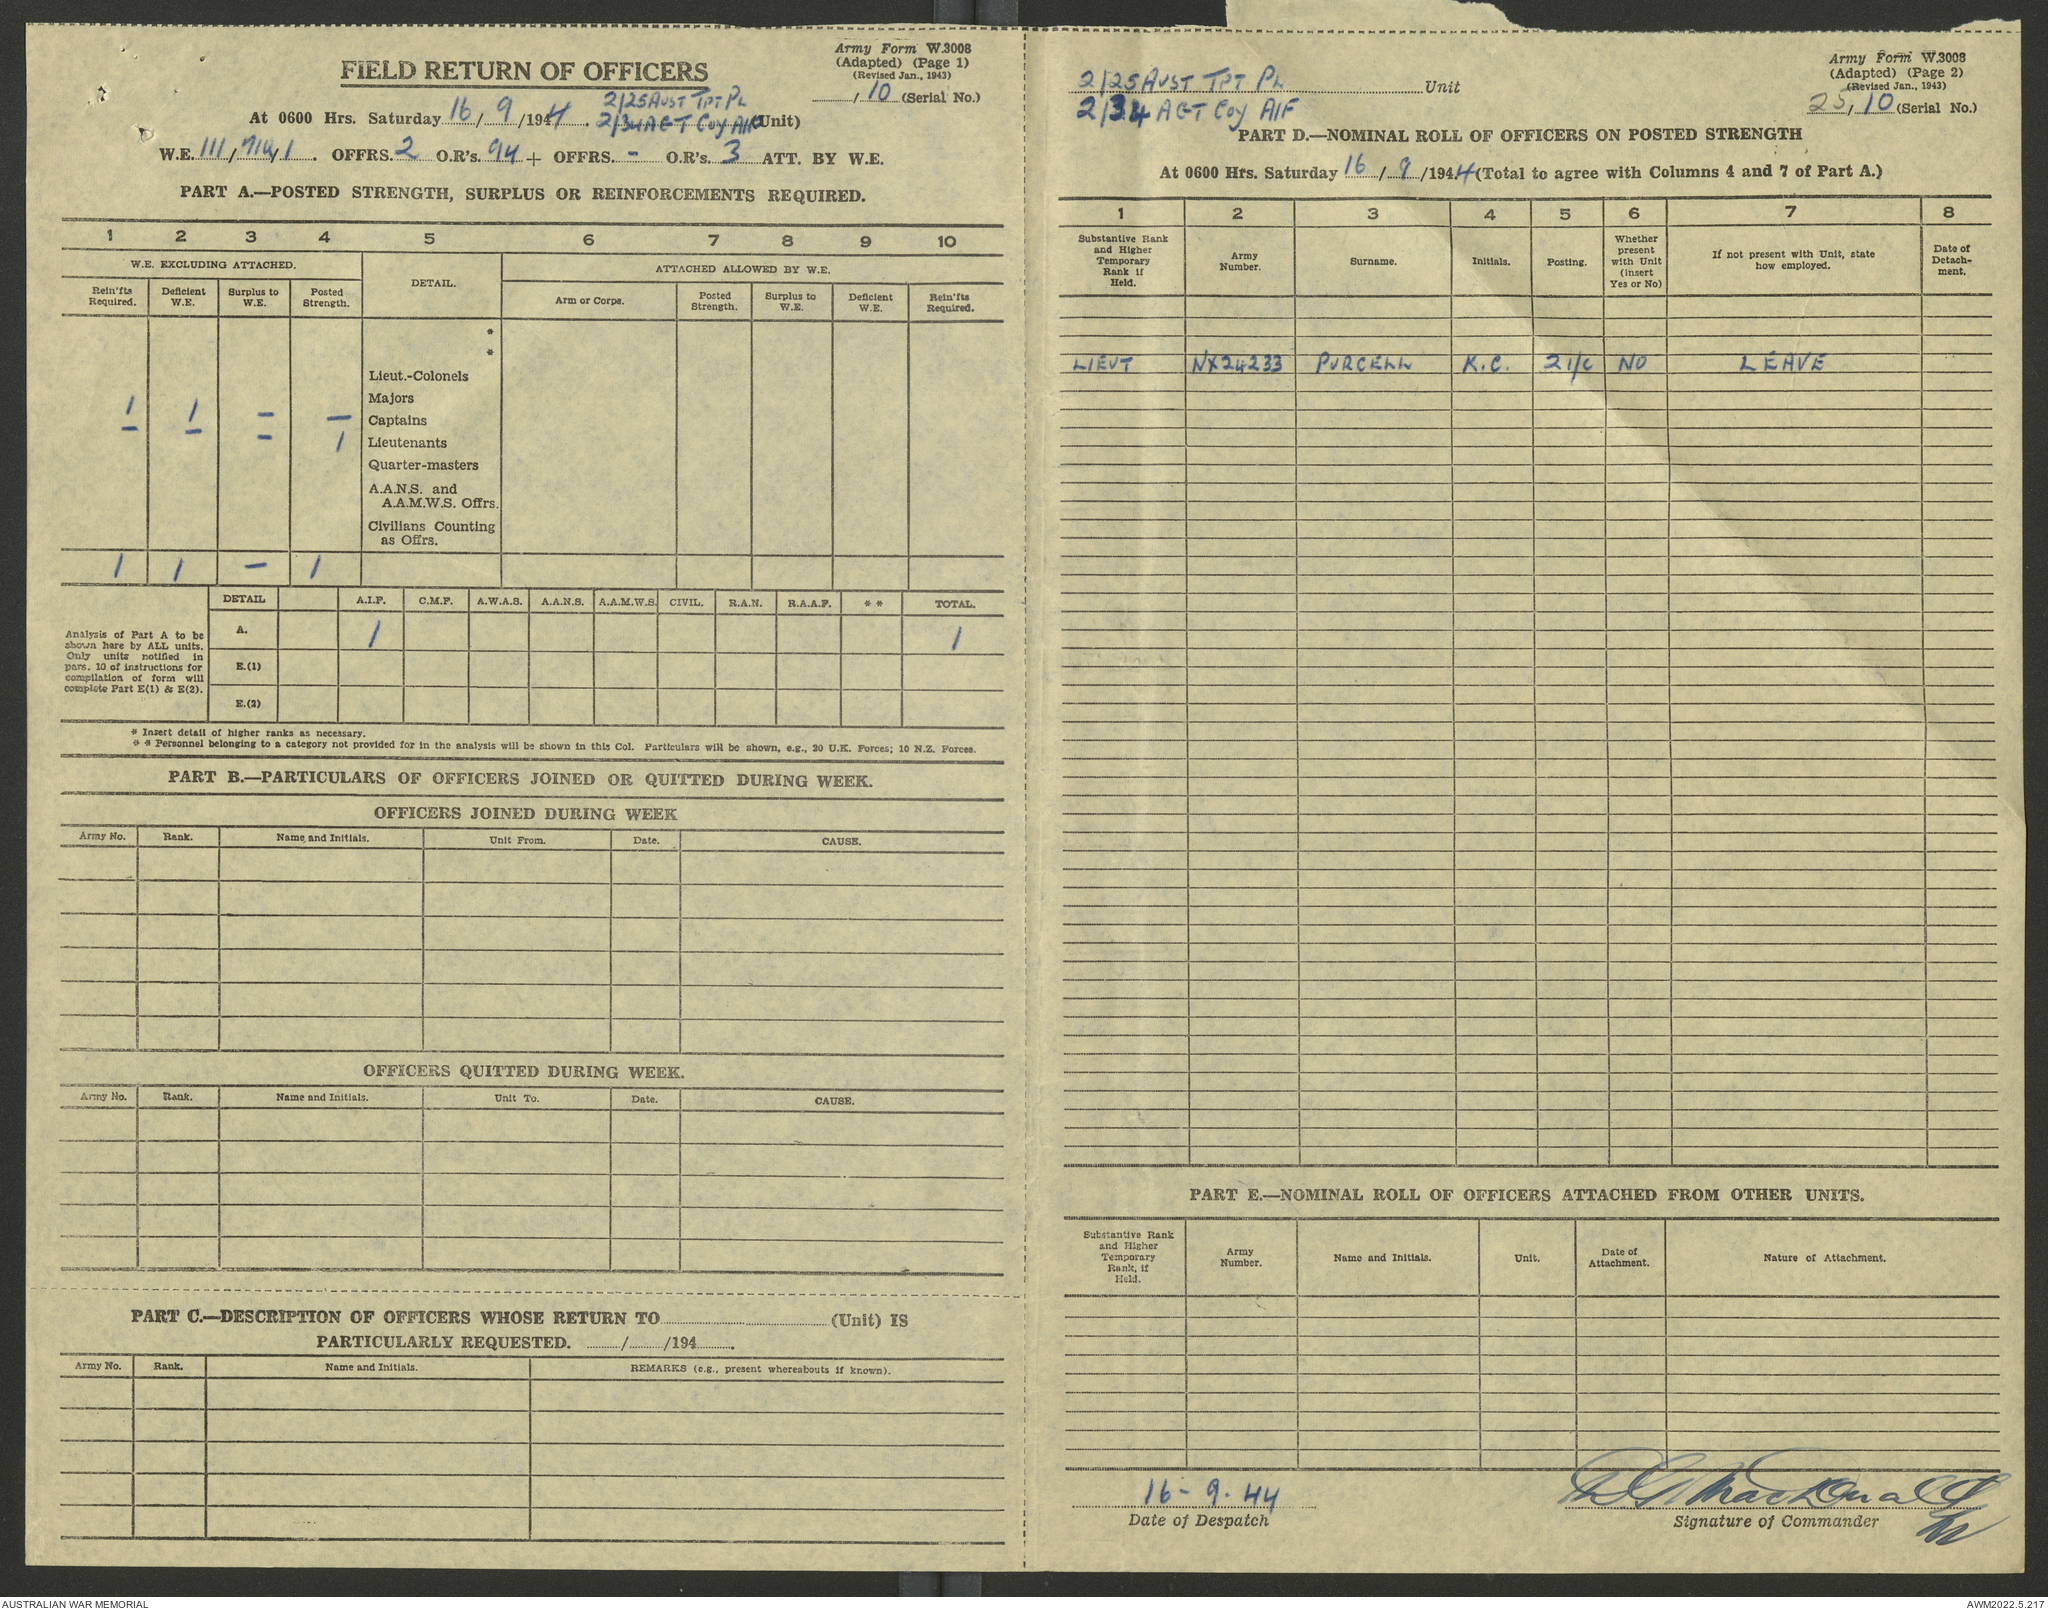 Army Form W.3008
(Adapted) (Page 1)
(Revised Jan., 1943)
FIELD RETURN OF OFFICERS
/ 10 (Serial No.)
At 0600 Hrs. Saturday 16 / 9 / 1944 . 2/25 AUST TPT PL
2/34 AGT COY AIF (Unit)
W.E. 111 / / 1 . OFFRS. 2 O.R's. 94 + OFFRS. - O.R's. 3 ATT. BY W.E.
PART A.—POSTED STRENGTH, SURPLUS OR REINFORCEMENTS REQUIRED.
1 2 3 4 5 6 7 8 9 10
W.E. EXCLUDING ATTACHED. DETAIL. ATTACHED ALLOWED BY W.E.
Rein'fts Required. Deficient W.E. Surplus to W.E. Posted Strength. Arm or Corps. Posted Strength. Surplus to W.E. Deficient W.E. Rein'fts Required.
*
*
Lieut.-Colonels
Majors
1 1 - - Captains
- - - 1 Lieutenants
Quarter-masters
A.A.N.S. and
A.A.M.W.S. Offrs.
Civilians Counting
as Offrs.
1 1 - 1
DETAIL A.I.F. C.M.F. A.W.A.S. A.A.N.S. A.A.M.W.S. CIVIL. R.A.N. R.A.A.F. * * TOTAL.
Analysis of Part A to be
shown here by ALL units.
Only units notified in
para. 10 of instructions for
compilation of form will
complete Part E(1) & E(2).
A. 1 1
E.(1)
E.(2)
* Insert detail of higher ranks as necessary.
* * Personnel belonging to a category not provided for in the analysis will be shown in this Col. Particulars will be shown, e.g., 20 U.K. Forces; 10 N.Z. Forces.
PART B.—PARTICULARS OF OFFICERS JOINED OR QUITTED DURING WEEK.
OFFICERS JOINED DURING WEEK
Army No. Rank. Name and Initials. Unit From. Date. CAUSE.
OFFICERS QUITTED DURING WEEK.
Army No. Rank. Name and Initials. Unit To. Date. CAUSE.
PART C.—DESCRIPTION OF OFFICERS WHOSE RETURN TO (Unit) IS
PARTICULARLY REQUESTED. / /194 .
Army No. Rank. Name and Initials. REMARKS (e.g., present whereabouts if known).
Army Form W.3008
(Adapted) (Page 2)
(Revised Jan., 1943)
2/25 AUST TPT PL Unit
2/34 AGT COY AIF
25 / 10 (Serial No.)
PART D.—NOMINAL ROLL OF OFFICERS ON POSTED STRENGTH
At 0600 Hrs. Saturday 16 / 9 /1944 (Total to agree with Columns 4 and 7 of Part A.)
1 2 3 4 5 6 7 8
Substantive Rank and Higher Temporary Rank if Held. Army Number. Surname. Initials. Posting. Whether present with Unit (insert Yes or No) If not present with Unit, state how employed. Date of Detach-ment.
LIEUT NX24233 PURCELL K.C. 2 I/C NO LEAVE
PART E.—NOMINAL ROLL OF OFFICERS ATTACHED FROM OTHER UNITS.
Substantive Rank and Higher Temporary Rank, if Held. Army Number. Name and Initials. Unit. Date of Attachment. Nature of Attachment.
16 - 9 . 44
Date of Despatch
Signature of Commander
AUSTRALIAN WAR MEMORIAL
AWM2022.5.217